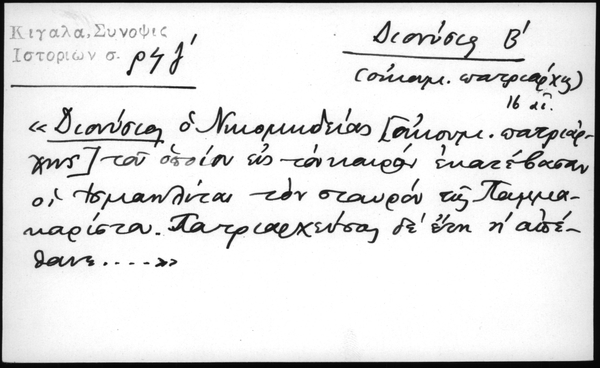 Κιγάλα, Σύνοψις
Ἱστοριῶν σ. ρϟγ΄
Διονύσιος Β΄
(οἰκουμ. πατριάρχης)
16 αἰ.
« Διονύσιος ὁ Νικομηδείας [οἰκουμ. πατριάρ-
χης] τοῦ ὁποίου εἰς τὸν καιρὸν ἐκατέβασαν
οἱ Ἰσμαηλῖται τὸν σταυρὸν τῆς Παμμα-
καρίστα. Πατριαρχεύσας δὲ ἔτη η΄ ἀπέ-
θανε.....»